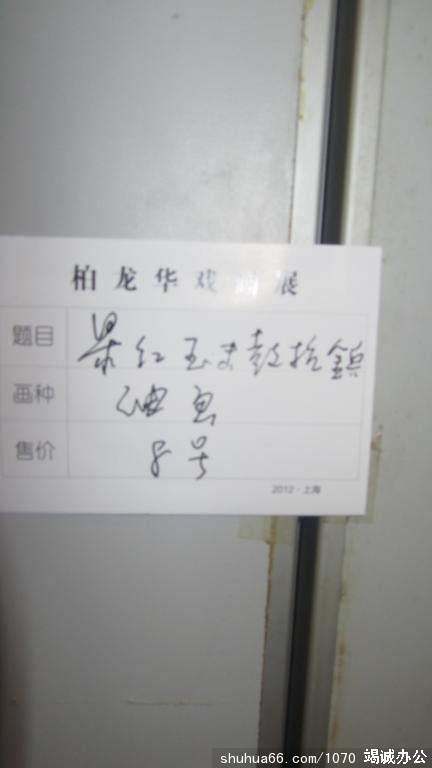 柏龙华戏画展
题目 梁红玉击鼓抗
画种 油画
售价 8号
2012·上海
shuhua66.com/1070 竭诚办公